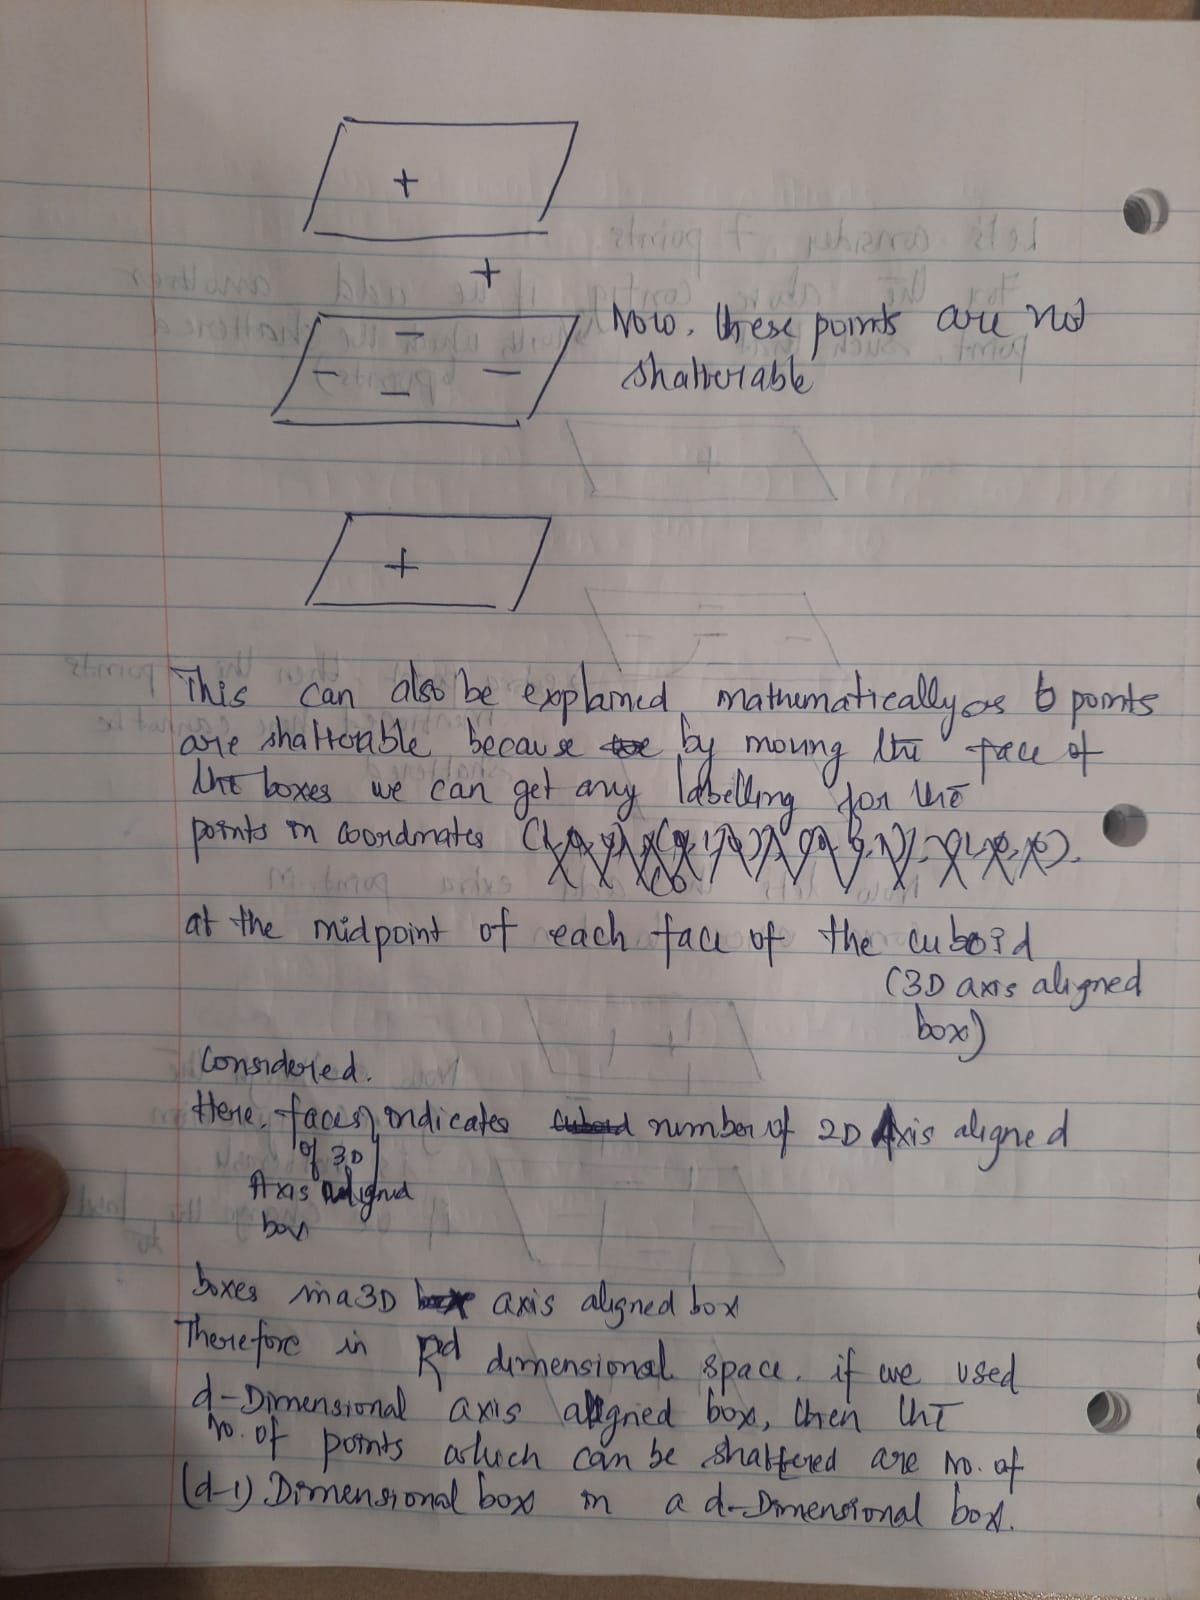 +
+
Now, these points are not
shatterable
- - - -
+
This can also be explained mathematically as 6 points
are shatterable because by moving the face of
the boxes we can get any labelling for the
points in coordinates
at the midpoint of each face of the cuboid
(3D axis aligned
box)
Considered.
Here, faces indicates number of 2D Axis aligned
of 3D
Axis aligned
box
boxes in a 3D axis aligned box
Therefore in R^d dimensional space, if we used
d-Dimensional axis aligned box, then the
no. of points which can be shattered are no. of
(d-1) Dimensional box in a d-Dimensional box.